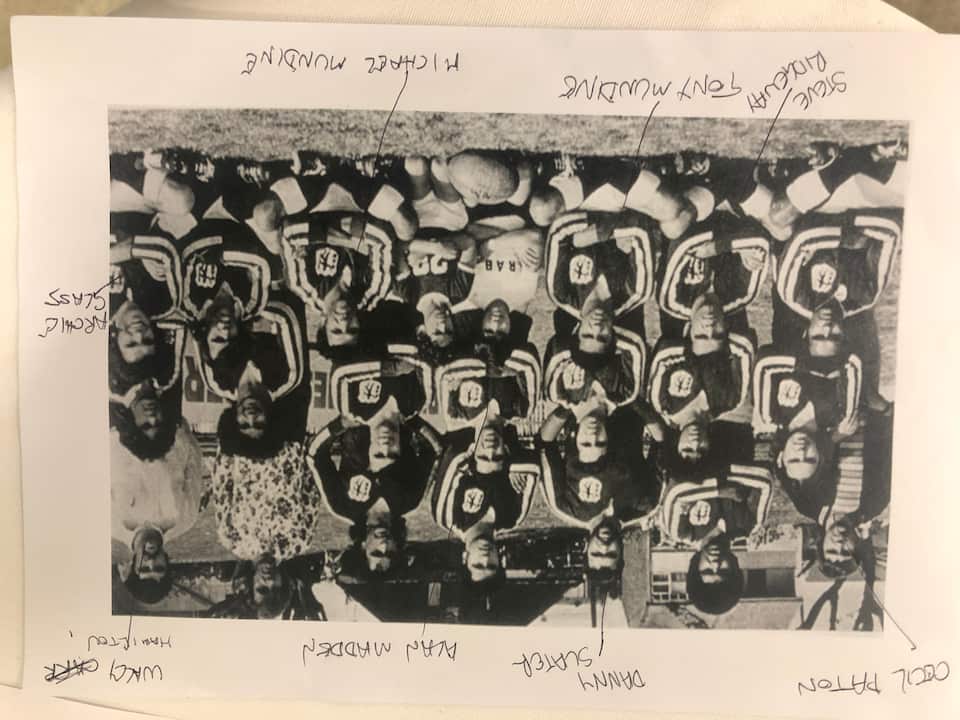 CECIL PATTON
DANNY
SLATER
ALAN MADDEN
WALLY CARR
HAMILTON
ARCHIE
GLASS
STEVE
RIDGEWAY
TONY MUNDINE
MICHAEL MUNDINE